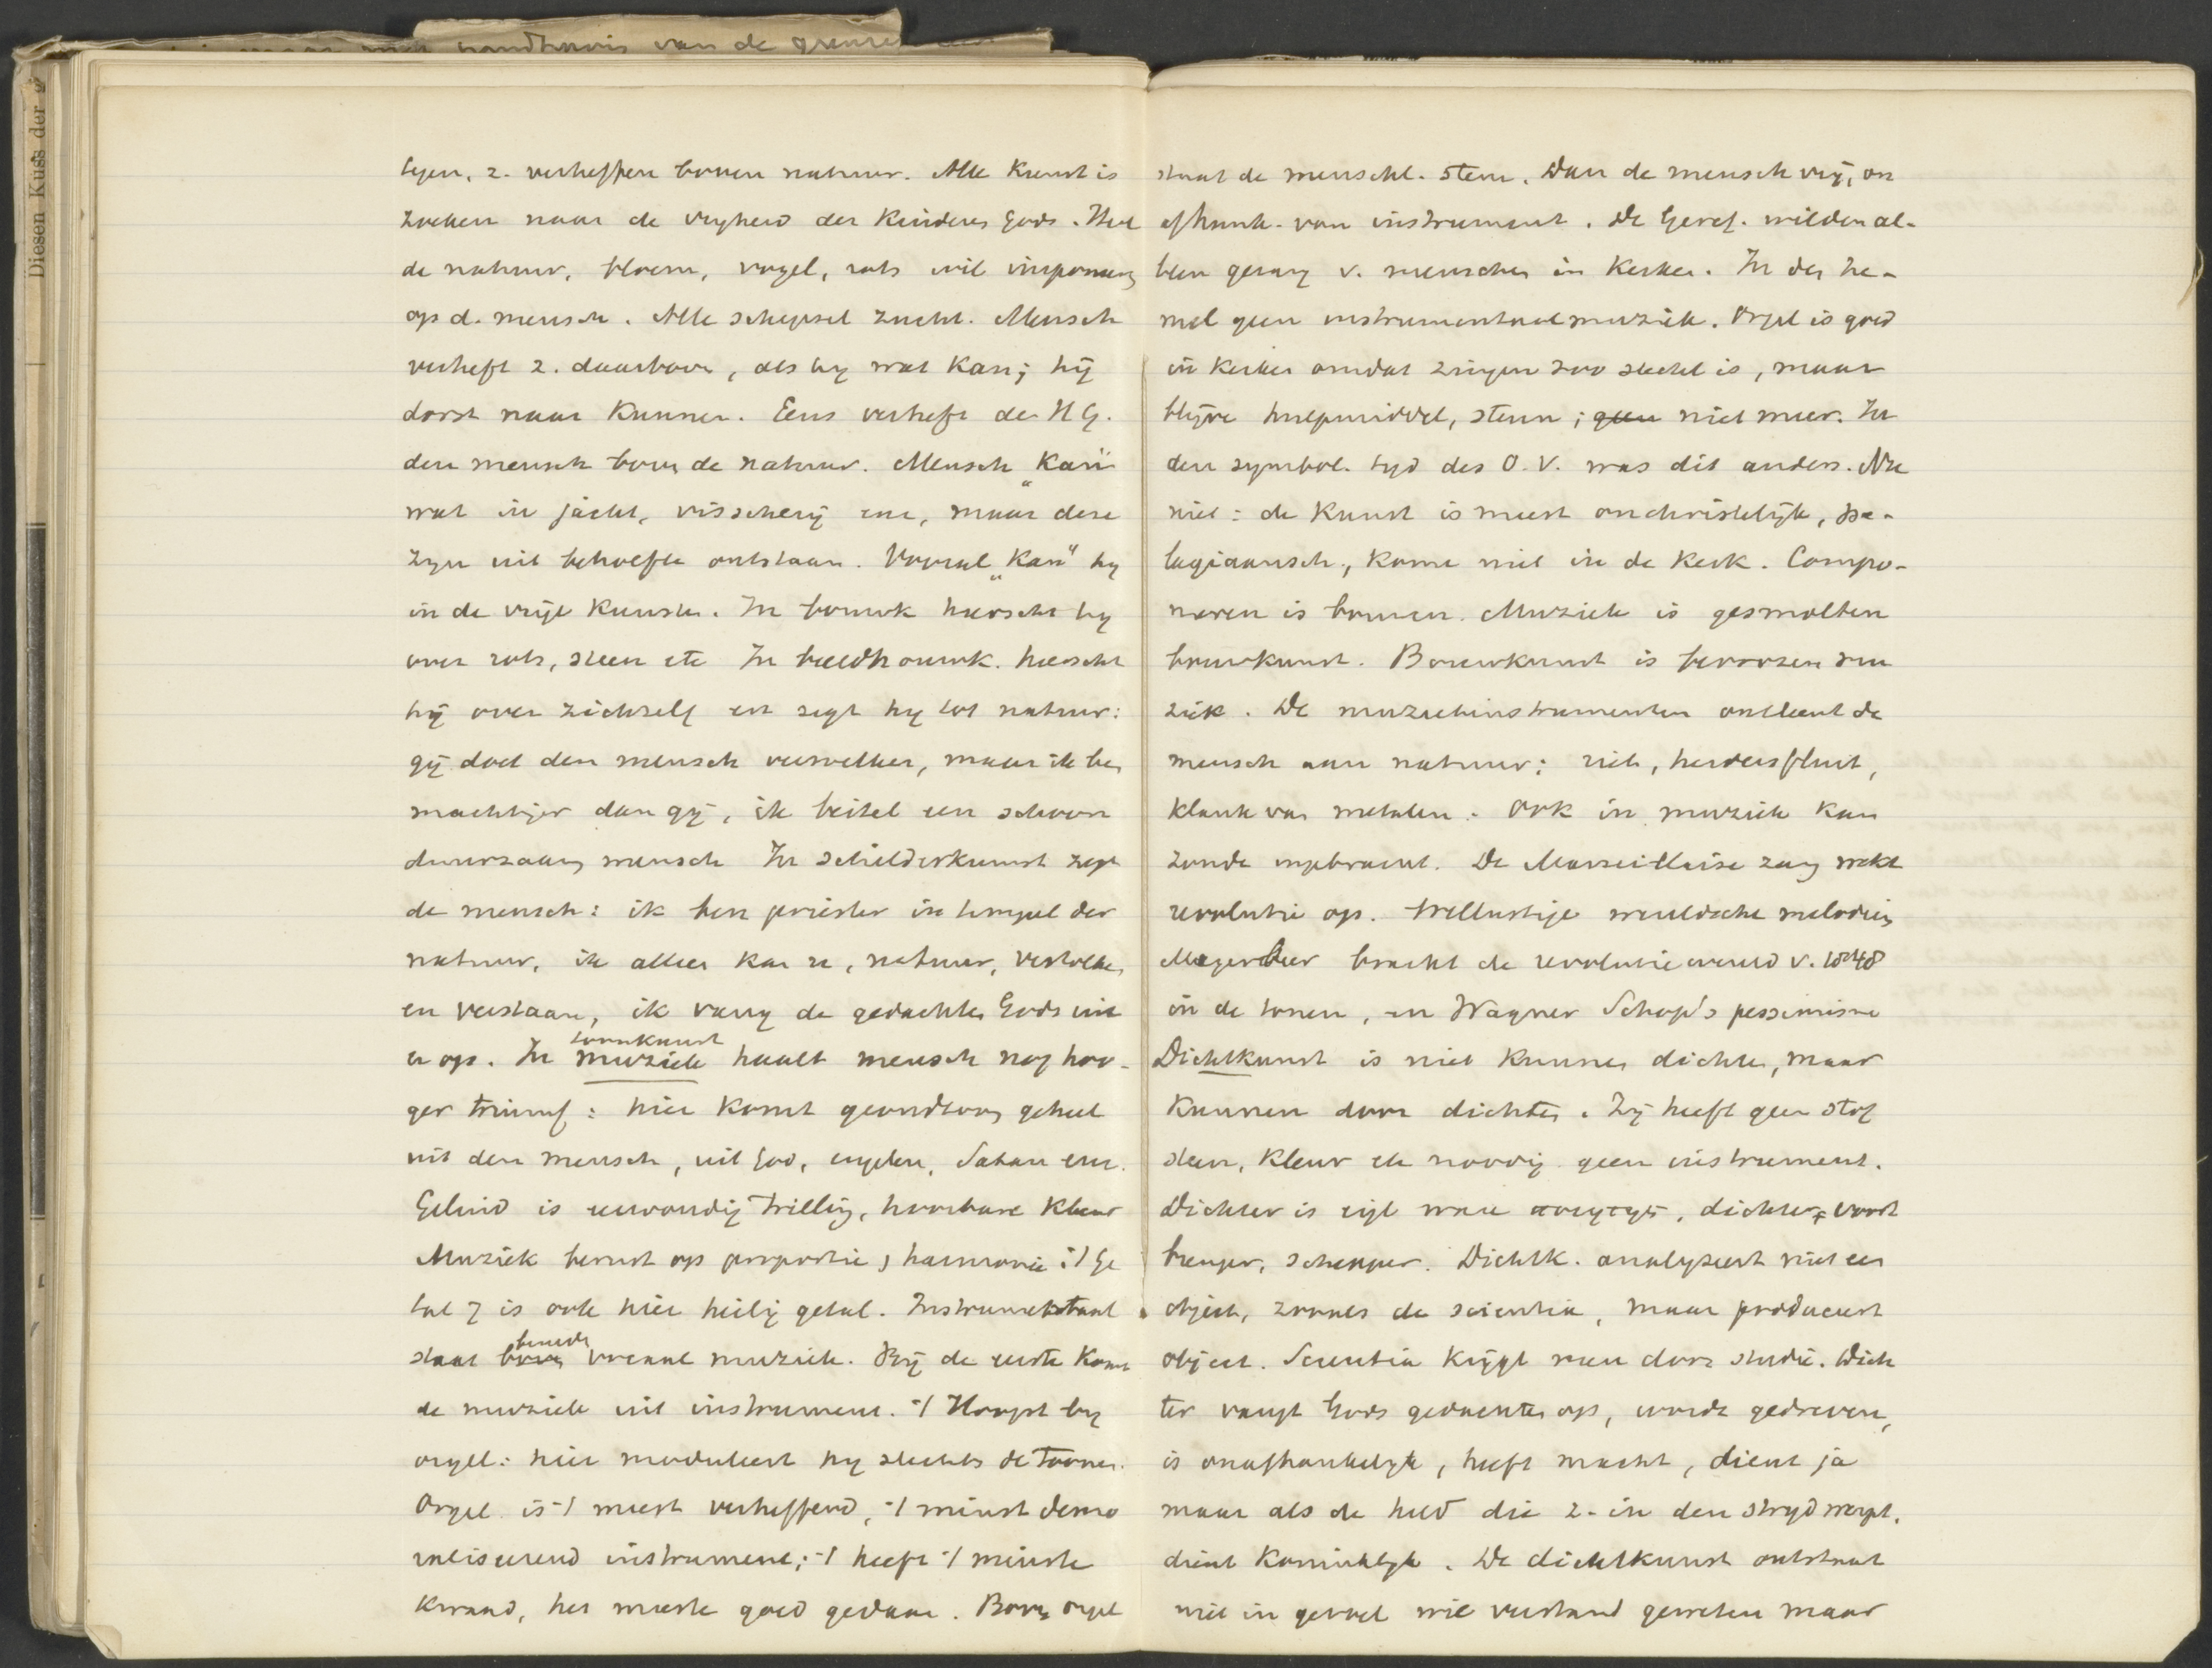 Diesen Kuss der
van de
tegen, z. verheffen boven natuur. Alle Kunst is
zoeken naar de vryheid der Kinderen Gods. Heel
de natuur, bloem, vogel, rots wil imponeeren
op d. mensch. Alle schepsel zucht. Mensch
verheft z. daarboven, als hy wat Kan; hij
dorst naar Kunnen. Eens verheft de H G.
den mensch boven de natuur. Mensch „Kan"
wat in jacht, visscherij enz, maar deze
zyn uit behoefte ontstaan. Vooral „Kan" hy
in de vrije Kunsten. In bouwk heerscht hy
over rots, steen etc In beeldhouwk. heerscht
hij over zichzelf en zegt hy tot natuur:
gij doet den mensch verwelken, maar ik ben
machtiger dan gij, ik beitel een schoon
duurzaam mensch In schilderkunst zegt
de mensch: ik ben priester in tempel der
natuur, ik alleen kan u, natuur, vertolken
en verstaan, ik vang de gedachten Gods uit
toonkunst
u op. In muziek haalt mensch nog hoo-
ger triumf: hier komt grondtoon geheel
uit den mensch, uit God, engelen, Satan enz.
Geluid is eenvoudig trilling, hoorbare Kleur
Muziek berust op proportie, harmonie :/ Ge
tal 7 is ook hier heilig getal. Instrumentaal
beneden
staat boven vocaal muziek. Bij de eerste Komt
de muziek uit instrument. ·/ Hoogst by
orgel: hier moduleert hy slechts de toonen.
Orgel is ·/ meest verheffend, ·/ minst demo
raliseerend instrument; ·/ heeft ·/ minste
Kwaad, het meeste goed gedaan. Boven orgel
staat de menschl. stem. Dan de mensch vrij, on
afhank. van instrument. De Geref. wilden al-
leen gezang v. menschen in Kerken. In den he-
mel geen instrumentaal muziek. Orgel is goed
in Kerken omdat zingen zoo slecht is, maar
blijve hulpmiddel, steun; geen niet meer. In
den symbol. tyd des O.V. was dit anders. Nu
niet: de Kunst is meest onchristelijk, pe-
lagiaansch, Kome niet in de Kerk. Compo-
neeren is bouwen. Muziek is gesmolten
bouwkunst. Bouwkunst is bevrozen mu
ziek. De muziekinstrumenten ontleent de
mensch aan natuur: riet, herdersfluit,
Klank van metalen. Ook in muziek kan
zonde ingebracht. De Marseillaise zang wekt
revolutie op. Wellustige weeldsche melodieën
Meyerbeer bracht de revolutie wereld v. 1848
in de tonen, en Wagner Schop's pessimisme
Dichtkunst is niet Kunnen dichten, maar
Kunnen door dichten. Zij heeft geen stof
steen, Kleur etc noodig geen instrument.
Dichter is eigl ware ποιητης, dichter, voort
brenger, schepper. Dichtk. analyseert niet een
object, zooals de scientia, maar produceert
object. Scientia Krijgt men door studie. Dich
ter vangt Gods gedachten op, wordt gedreven,
is onafhankelyk, heeft macht, dient ja
maar als de held die z. in den stryd werpt,
dient Koninklyk. De dichtkunst ontstaat
niet in gevoel wil verstand geweten maar